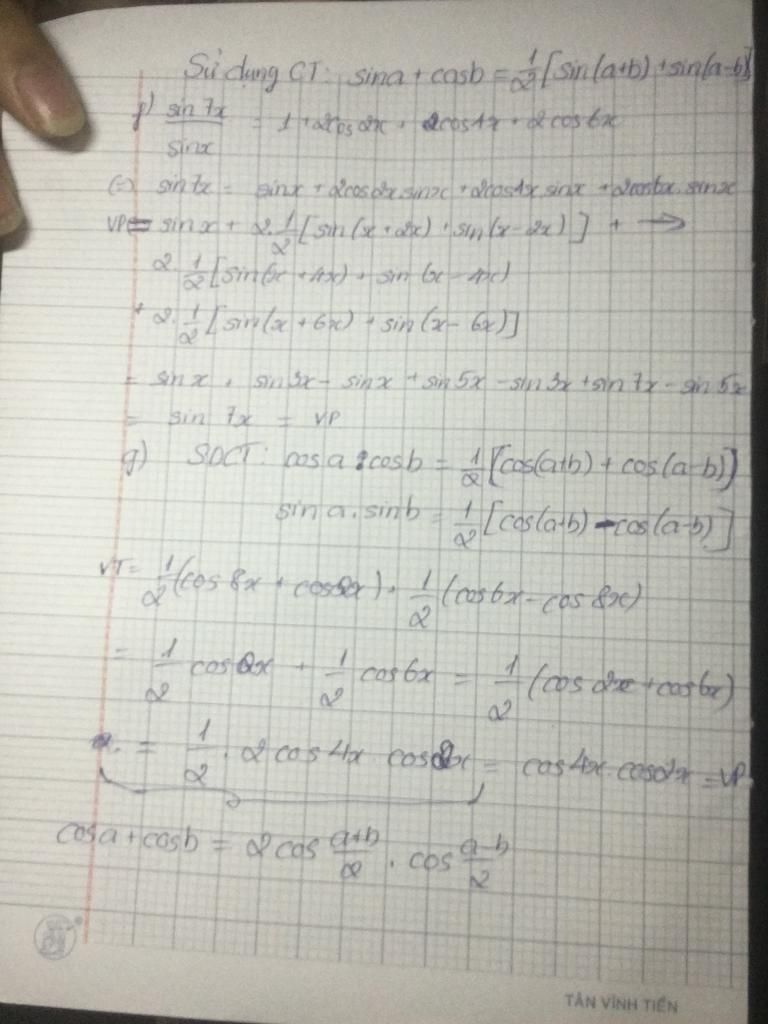 Sử dụng CT: sina + cosb = 1/2 [sin(a+b) + sin(a-b)]
f) sin 7x / sinx = 1 + 2cos 2x + 2cos4x + 2cos6x
(=) sin7x = sinx + 2cos2x sinx + 2cos4x sinx + 2cos6x.sinx
VP = sinx + 2.1/2 [sin(x+2x) + sin(x-2x)] + →
2.1/2 [sin(x+4x) + sin(x-4x)
+ 2.1/2 [sin(x+6x) + sin(x-6x)]
= sinx + sin3x - sinx + sin5x - sin3x + sin7x - sin5x
= sin 7x = VP
g) SDCT: cosa.cosb = 1/2 [cos(a+b) + cos(a-b)]
sina.sinb = 1/2 [cos(a+b) - cos(a-b)]
VT = 1/2 (cos8x + cos2x) + 1/2 (cos6x - cos8x)
= 1/2 cos2x + 1/2 cos6x = 1/2 (cos2x + cos6x)
= 1/2 . 2cos4x cos2x = cos4x.cos2x = VP
cosa + cosb = 2cos a+b/2 . cos a-b/2
TÂN VĨNH TIẾN